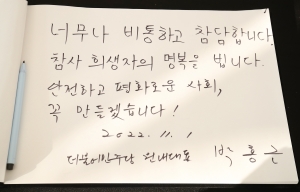 너무나 비통하고 참담합니다.
참사 희생자의 명복을 빕니다.
안전하고 평화로운 사회,
꼭 만들겠습니다!
2022. 11. 1
더불어민주당 원내대표 박홍근